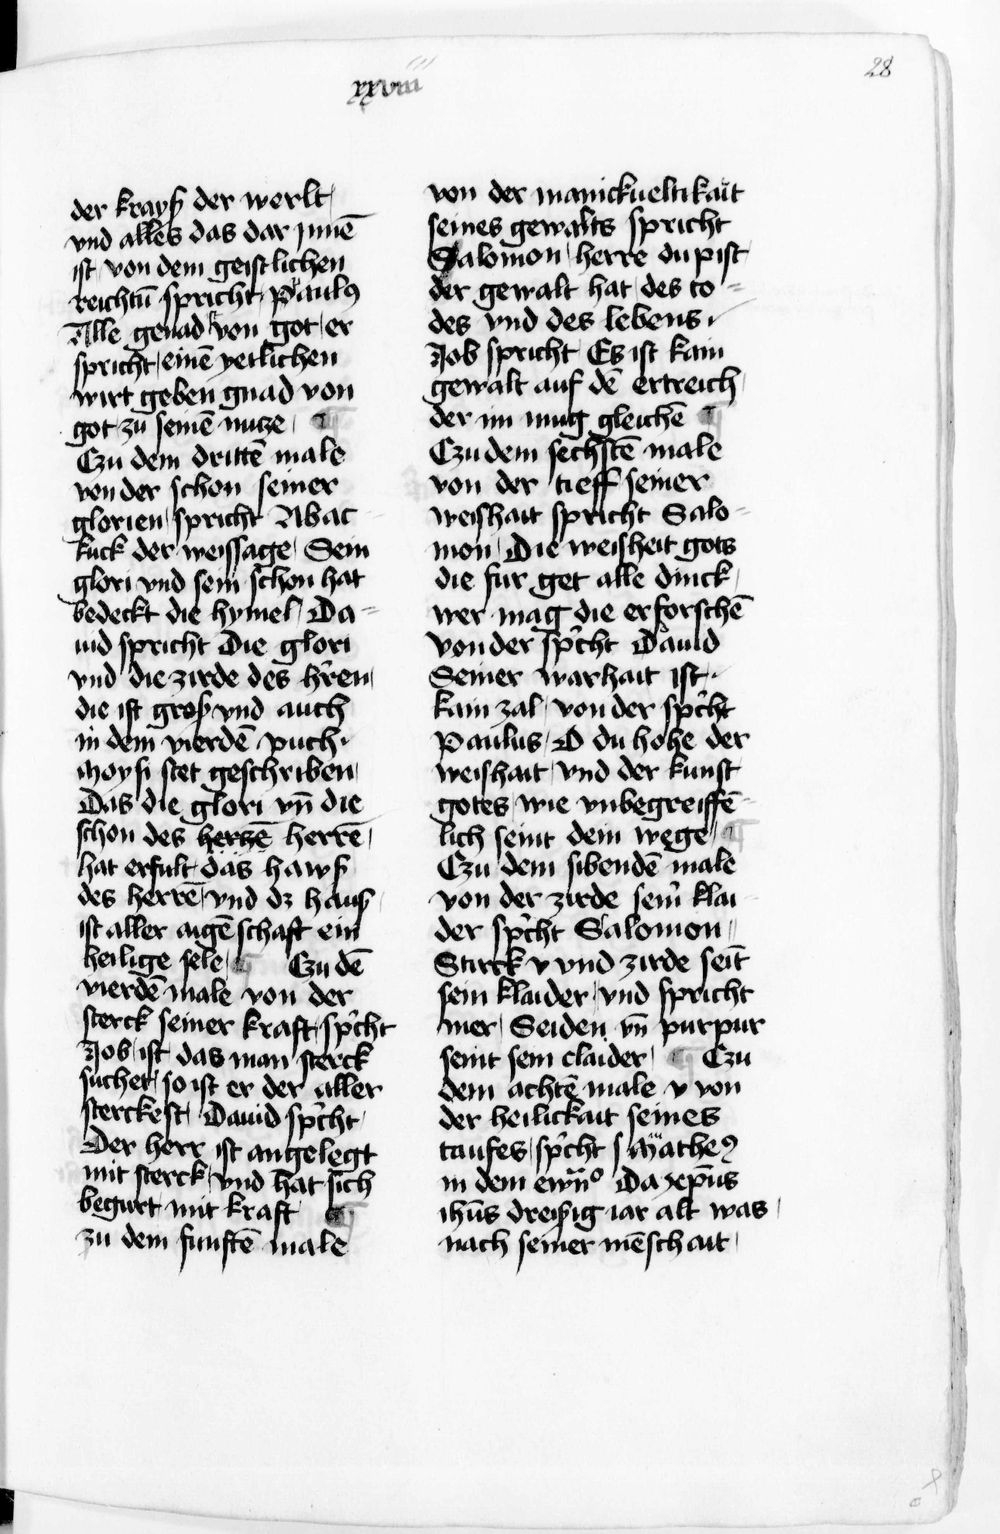 xxviii
28
der krayß der werlt /
vnd alles das dar jnnē
ist / von dem geistlichen
reichtū spricht / Paulꝰ
Alle genad von got / er
spricht / einē yetlichen
wirt geben gnad von
got / zu seinē nutze / ¶
Czu dem drittē male
von der schon seiner
glorien / spricht Abac-
kuck der weissage / Sein
glori vnd sein schon hat
bedeckt die hymel / Da=
uid spricht Die glori
vnd die zirde des hꝛ̄en /
die ist groß vnd auch
in dem vierdē puch ·
Moysi stet geschriben /
Das die glori vn̄ die
schon des herzē herrē /
hat erfult das hawß
des herrē / vnd dz hauß /
ist aller aigēschaft ein
heilige sele / ¶ Czu dē
vierdē male von der
sterck seiner kraft / sp̄cht
Job / ist das man sterck
suchet / so ist er der aller
sterckest / Dauid sp̄cht /
Der herr ist angelegt
mit sterck / vnd hat sich
begurt mit kraft ¶
zu dem funftē male
von der manickueltikait
seines gewalts spricht
Salomon / herre du pist
der gewalt hat / des to=
des vnd des lebens /
Job spricht Es ist kain
gewalt auf dē ertreich /
der im mug gleichē ¶
Czu dem sechstē male
von der tieff seiner
weishait spricht Salo-
mon / Die weisheit gots
die fur get alle dinck /
wer mag die erforschē
von der sp̄cht Dauid
Seiner warhait ist ·
kain zal / von der sp̄cht
Paulus / O du hohe der
weishait / vnd der kunst
gotes / wie vnbegreiffē-
lich seint dein wege / ¶
Czu dem sibendē male
von der zirde sein̄ klai-
der sp̄cht Salomon /
Stirck v vnd zirde seīt
sein klaider / vnd spricht
mer / Seiden vn̄ purpur
seint sein claider / ¶ Czu
dem achtē male v von
der heilickait seines
taufes / sp̄cht s Matheꝰ
in dem ewn̄º Da xep̄us
ihūs dreißig iar alt was /
nach seiner mēschait /